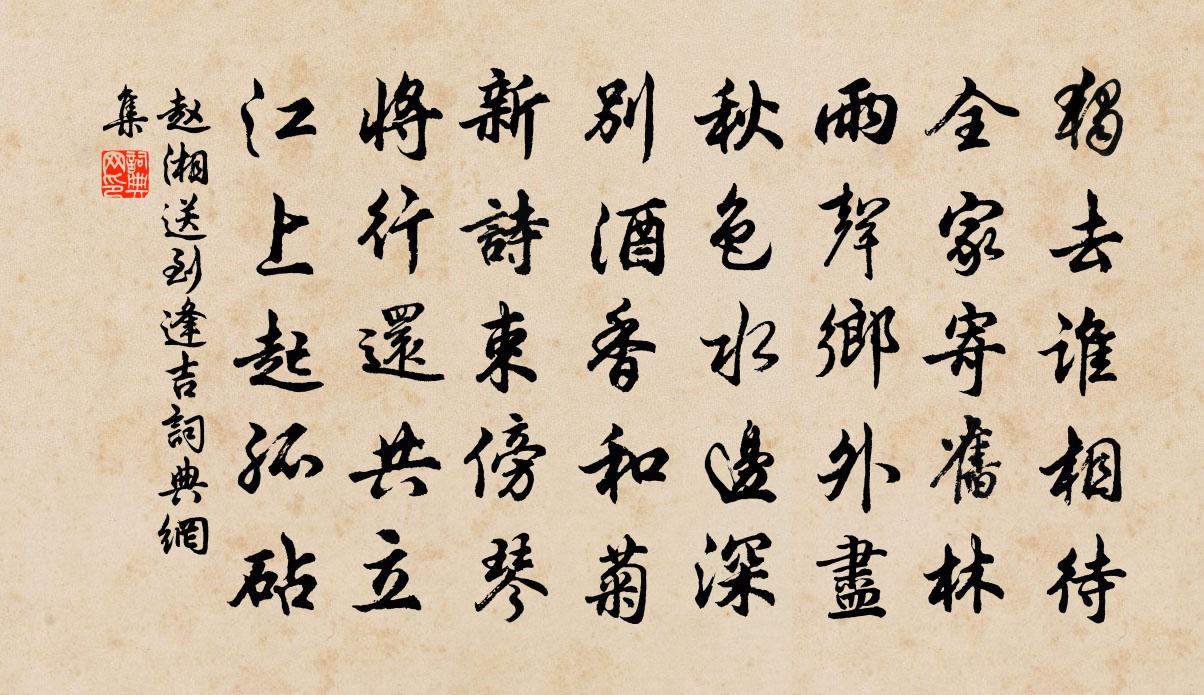 獨去誰相待
全家寄舊林
雨聲鄉外盡
秋色水邊深
別酒香和菊
新詩束傍琴
將行還共立
江上起孤砧
赵湘送到逢吉詞典網
集
詞典
网印